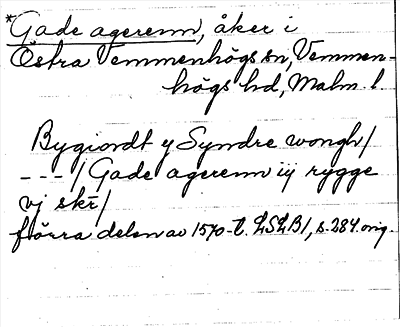 *Gade agerenn, åker i
Östra Vemmenhögs sn, Vemmen-
högs hd, Malm. l.
Bygiordt y Syndre wongh/
- - - / Gade agerenn iij rygge
vj skr/
förra delen av 1570-t. LSLB1, s. 284. orig.